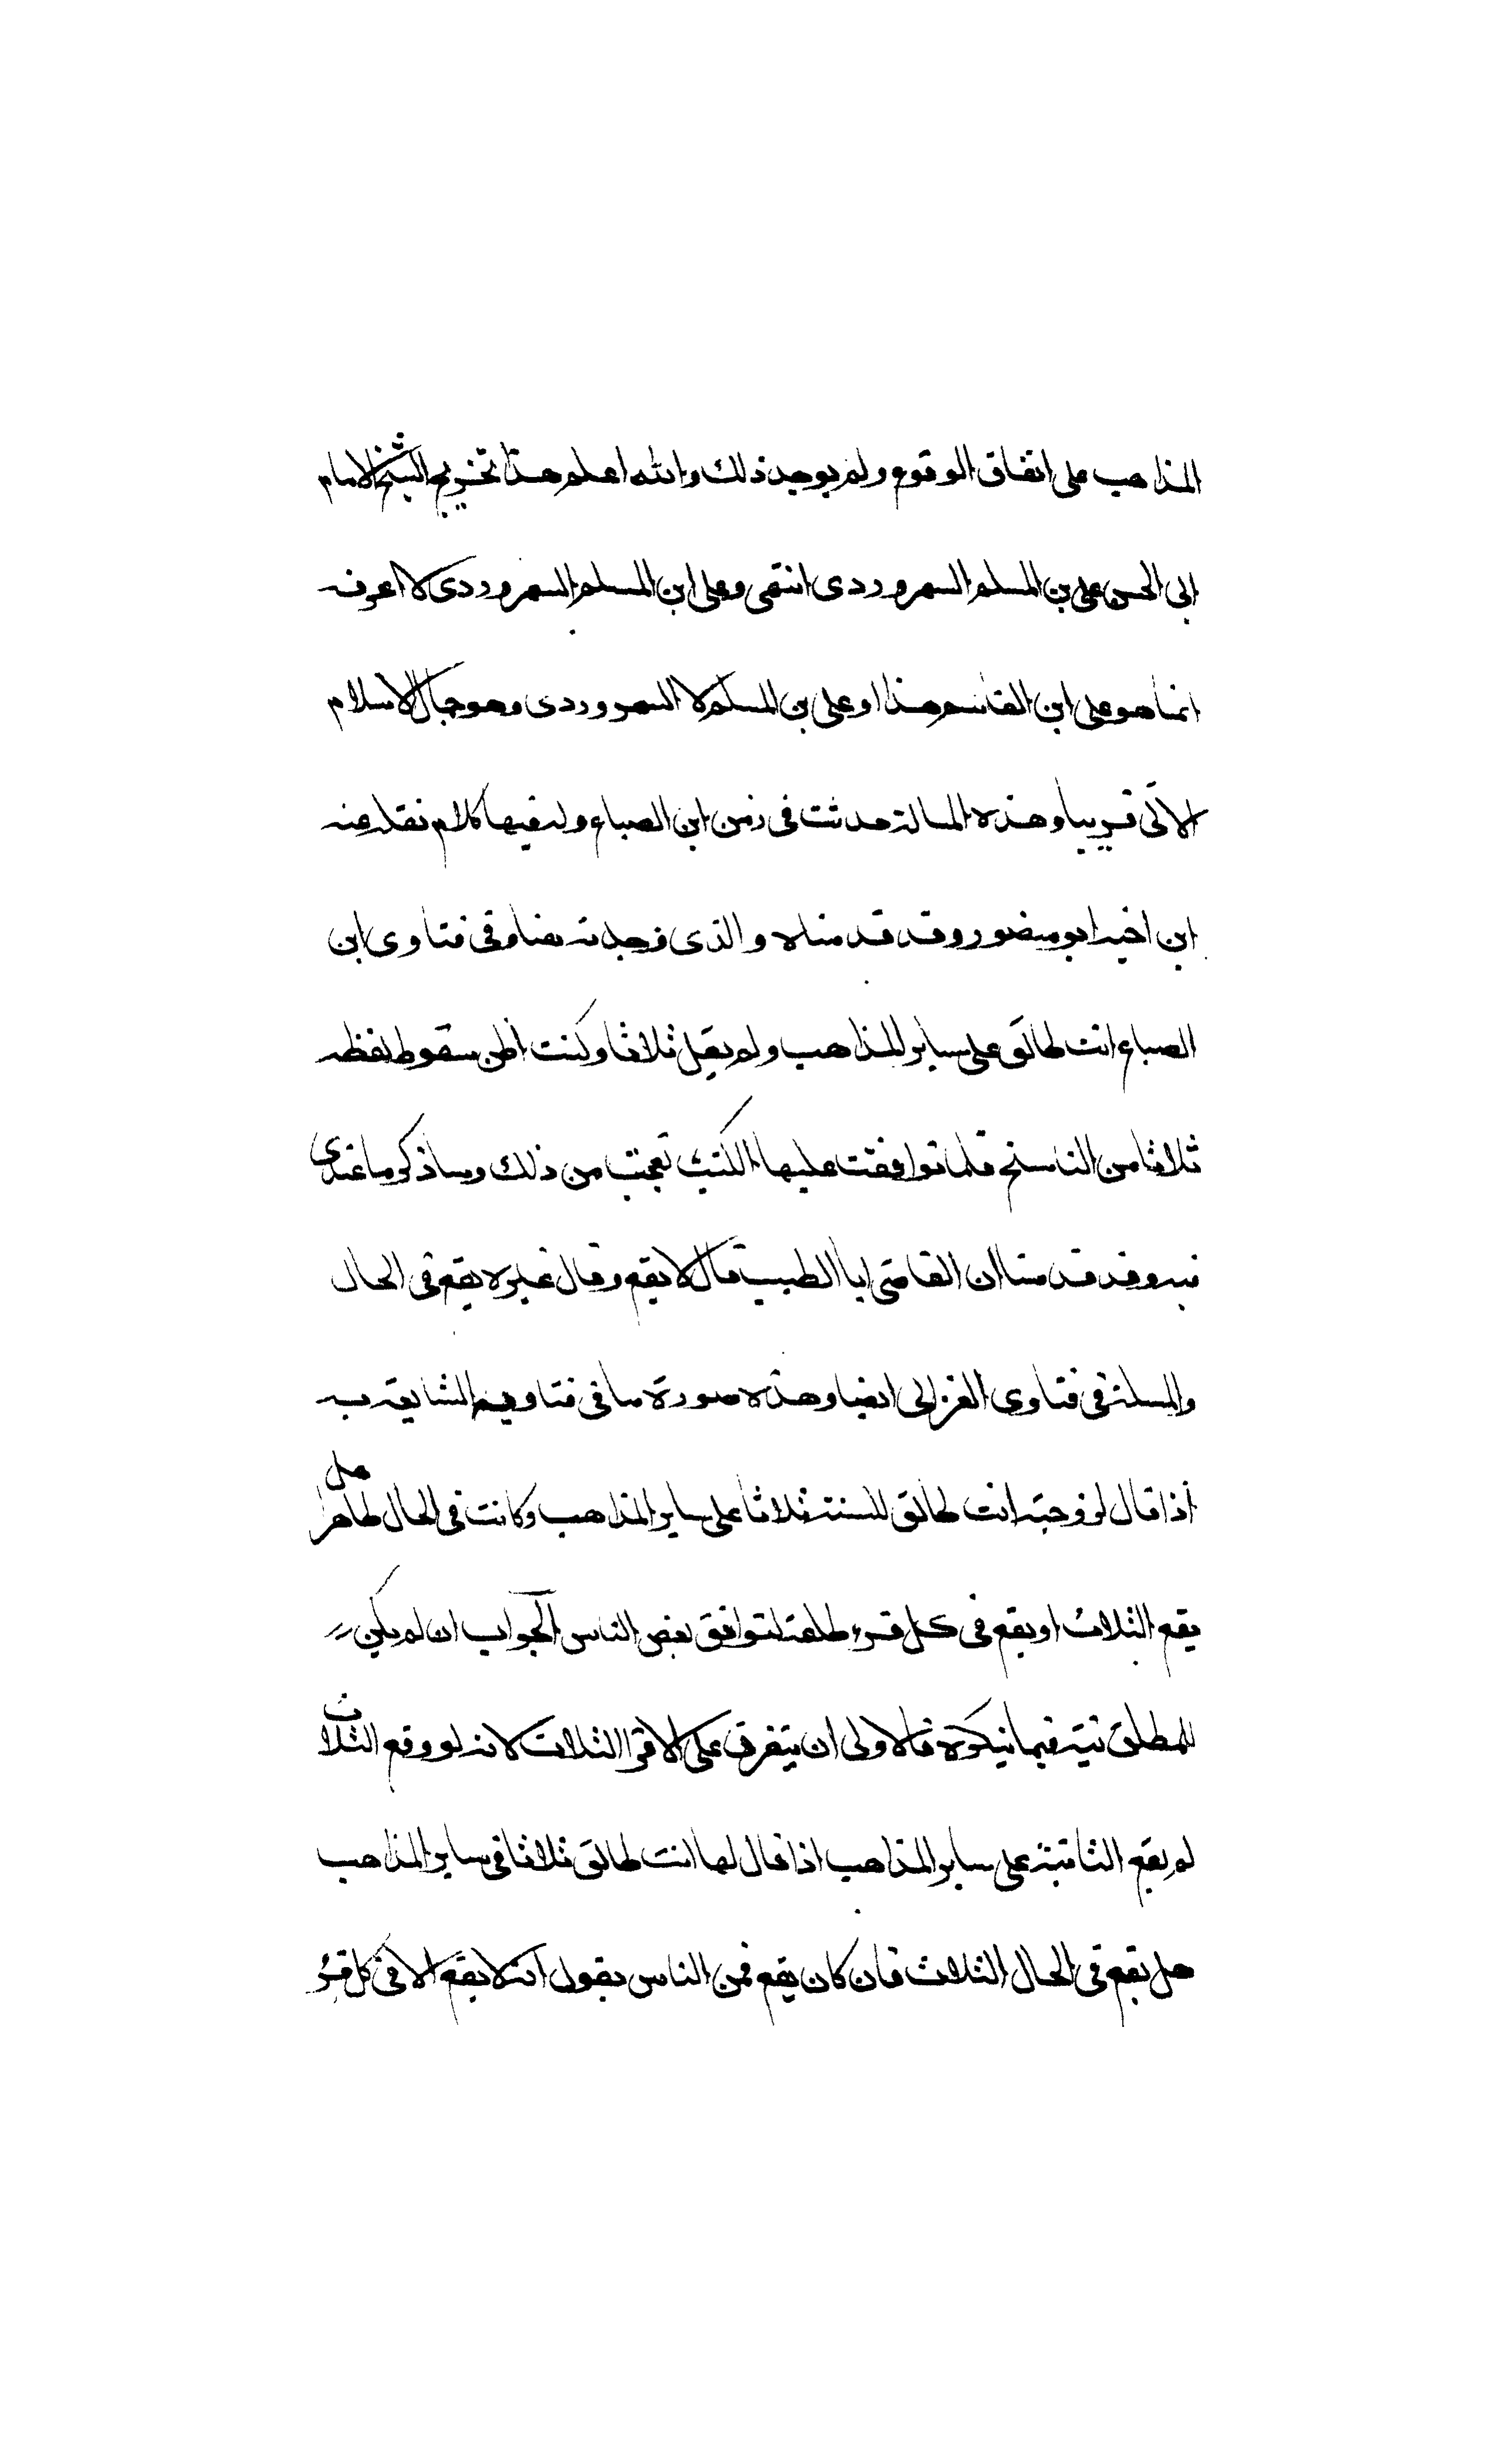 المذاهب على اتفاق الوقوع ولم يوجد ذلك والله اعلم هذا تخريج الشيخ الامام
ابى الحسن على بن المسلم السهروردى انتهى وعلى ابن المسلم السهروردى لا اعرفه
انما هو على ابن القاسم هذا او على بن المسلم لا السهروردى وهو جمال الاسلام
الاتى قريبا وهذه المسالة حدثت فى زمن ابن الصباغ وله فيها كلام نقله عنه
ابن اخيه ابو منصور وقد قدمناه والذى وجدته نصا فى فتاوى ابن
الصباغ انت طالق على ساير المذاهب ولم يقل ثلاثا وكنت اظن سقوط لفظه
ثلاثا من الناسخ فلما توافقت عليها الكتب تعجبت من ذلك وساذكر ما عندى
فيه وقد قدمنا ان القاضى ابا الطيب قال لا يقع وقال غيره يقع فى الحال
والمسلة فى فتاوى الغزالى ايضا وهذه صورة ما فى فتاويه
اذا قال لزوجته انت طالق للسنة ثلاثا على ساير المذاهب وكانت فى الحال طاهرا هل
يقع الثلاث او يقع فى كل قرء طلقة لتوافق بعض الناس الجواب ان لم يكن
للمطلق نية فيما ينكره فالاولى ان يتفرق على الاقرا الثلاث لانه لو وقع الثلاث
لم يقع على ساير المذاهب اذا قال لها انت طالق ثلاثا فى ساير المذاهب
هل يقع فى الحال الثلاث فان كان يقع فمن الناس يقول انه لا يقع الا فى كل قرء